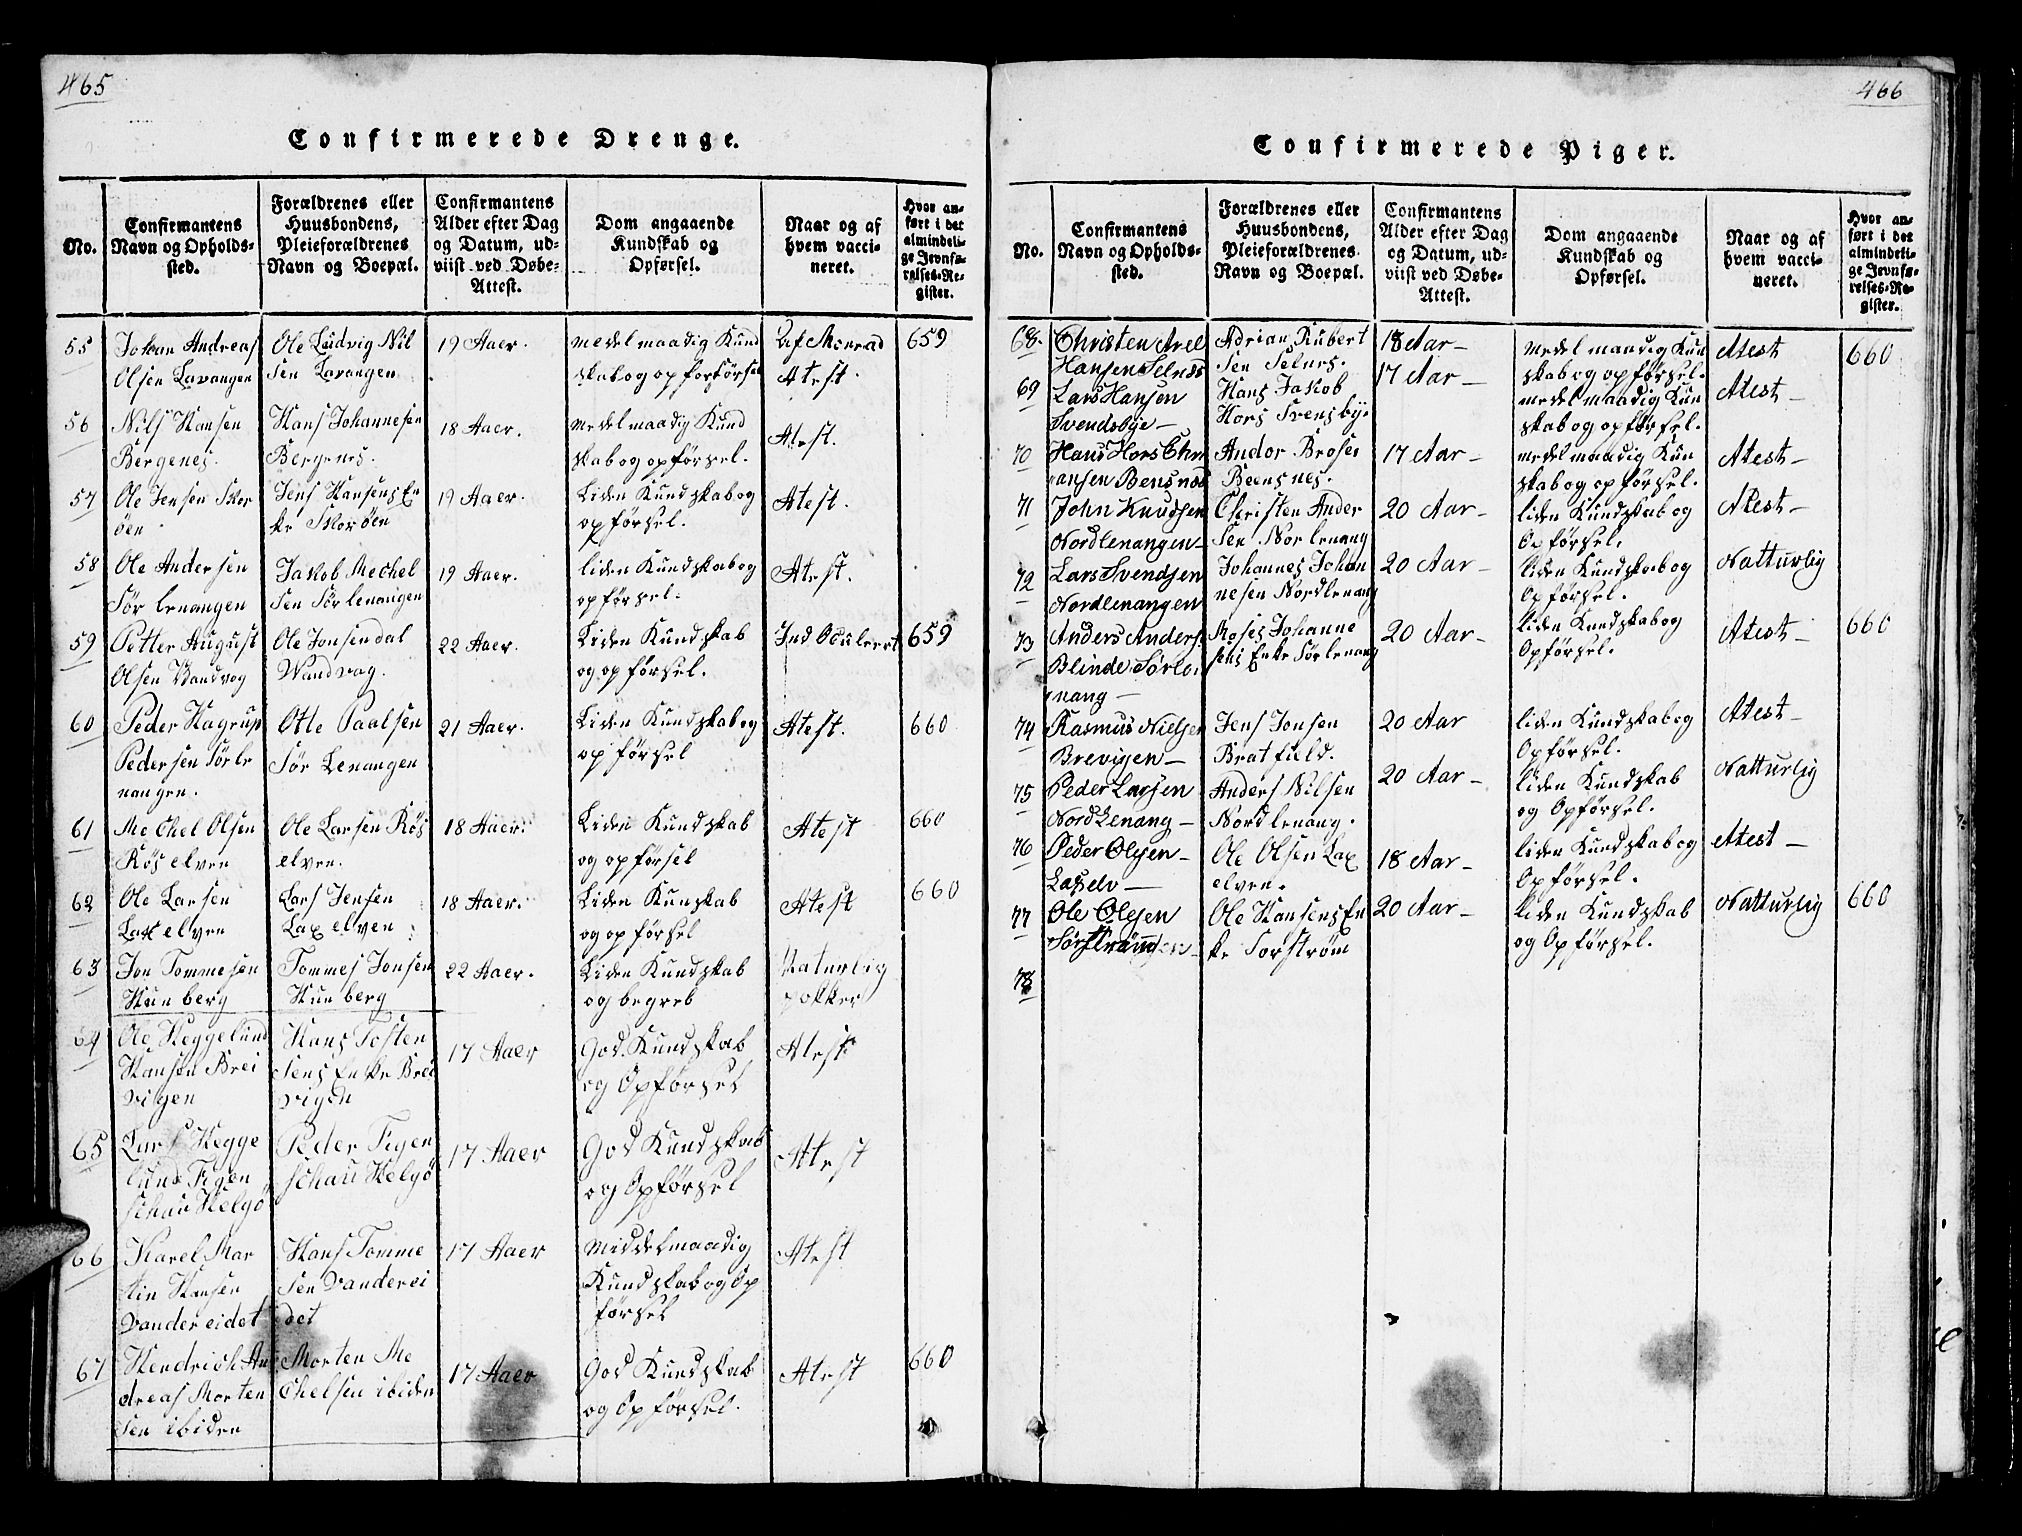 465
Confirmerede Drenge.
No.
Confirmantens
Navn og Opholds-
sted.
Forældrenes eller
Huusbondens,
Pleieforældrenes
Navn og Boepæl.
Confirmantens
Alder efter Dag
og Datum, ud-
viist ved Døbe-
Attest.
Dom angaaende
Kundskab og
Opførsel.
Naar og af
hvem vacci-
neret.
Hvor an-
ført i det
almindeli-
ge Jevnfø-
relses-Re-
gister.
55
Johan Andreas
Olsen Lavangen
Ole Ludvig Nil
sen Lavangen
19 Aaer.
medelmaadig Kund
skab og opforførsel
Af Monrad
Atest.
659
56
Nils Hansen
Bergenes.
Hans Johannesen
Bergenes.
18 Aaer.
medelmaadig Kund
skab og opførsel.
Atest.
57
Ole Jensen Skor
öen
Jens Hansens En
ke Skoröen
19 Aaer.
Liden Kundskab og
opförsel.
Atest.
58
Ole Andersen
Sör lenangen
Jakob Mechel
sen Sör lenangen
19 Aaer.
liden Kundskab og
opførsel.
Atest.
59
Petter August
Olsen Vandvog
Ole Jonsendal
Wandvag.
22 Aaer.
Liden Kundskab
og opførsel.
Ind Oculeert
659
60
Peder Hagrup
Pedersen Sörle
nangen.
Otte Paalsen
Sör Lenangen
21 Aaer.
Liden Kundskab og
opførsel
Atest.
660
61
Mechel Olsen
Rös elven
Ole Larsen Rös
elven.
18 Aaer.
Liden Kundskab
og opförsel
Atest
660
62
Ole Larsen
Lax elven
Lars Jensen
Lax elven
18 Aaer.
Liden Kunskab
og opførsel
Atest
660
63
Jon Tommesen
Hun berg
Tommes Jonsen
Hun berg
22 Aaer.
Liden Kundskab
og begreb
Naturlig
pokker
64
Ole Heggelund
Hansen Brei
vigen
Hans Tosten
sens Enke Brei
vigen
17 Aaer
God Kundskab
og Opførsel
Atest
65
Lars Hegge
lund Figen
schau Helgö
Peder Figen
schau Helgö
17 Aaer
God Kundskab
og Opførsel
Atest
66
Karel Mar
tin Hansen
Vander eidet
Hans Tomme
sen Vanderei
det
17 Aaer
Middelmaadig
Kundskab og Op
førsel
Atest
67
Hendrich An
dreas Morten
sen ibiden
Morten Me
Chelsen ibiden
17 Aaer
God Kundskab
og Opførsel.
Atest
660
466
Confirmerede Piger.
No.
Confirmantens
Navn og Opholds-
sted.
Forældrenes eller
Huusbondens,
Pleieforældrenes
Navn og Boepæl.
Confirmantens
Alder efter Dag
og Datum, ud-
viist ved Døbe-
Attest.
Dom angaaende
Kundskab og
Opførsel.
Naar og af
hvem vacci-
neret.
Hvor an-
ført i det
almindeli-
ge Jevnfø-
relses-Re-
gister.
68.
Christen Arel
Hansen Selnes
Adrian Rubert
sen Selnes.
18 Aar
medelmaadig Kun
skab og opførsel.
Atest
660
69
Lars Hansen
Svendsbye
Hans Jakob
Hors Svensbye
17 Aar
medelmaadig Kun
skab og opførsel.
Atest
70
Hans Hors Chri
ansen Bensnes
Andor
Bensnes.
17 Aar
medelmaadig Kun
skab og opførsel.
Atest
71
John Knudsen
Nordlenangen
Christen Ander
sen Norlenang
20 Aar
liden Kundskab og
Opførsel.
Atest
72
Lars Svendsen
Nordlenangen
Johannes Johan
nesen Nordlenang
20 Aar
liden Kundskab og
Opførsel.
Natturlig
73
Anders Anders.
Blinde Sørle
nang
Moses Johanne
sens Enke Sørlenang
20 Aar
liden Kundskab og
Opførsel.
Atest
660
74
Rasmus Nielsen
Brevigen
Jens Jonsen
Bratfield.
20 Aar
liden Kundskab og
Opførsel.
Atest
75
Peder Larsen
NordLenang
Anders Nilsen
Nordlenang.
20 Aar
liden Kundskab
og Opførsel.
Natturlig
76
Peder Olsen
Laxelv
Ole Olsen Lax
elven.
18 Aar
liden Kundskab og
Opførsel.
Atest
77
Ole Olsen
Sørstrømmen
Ole Hansens En
ke Sorstrøm
20 Aar
liden Kundskab
og Opførsel.
Natturlig
660
78